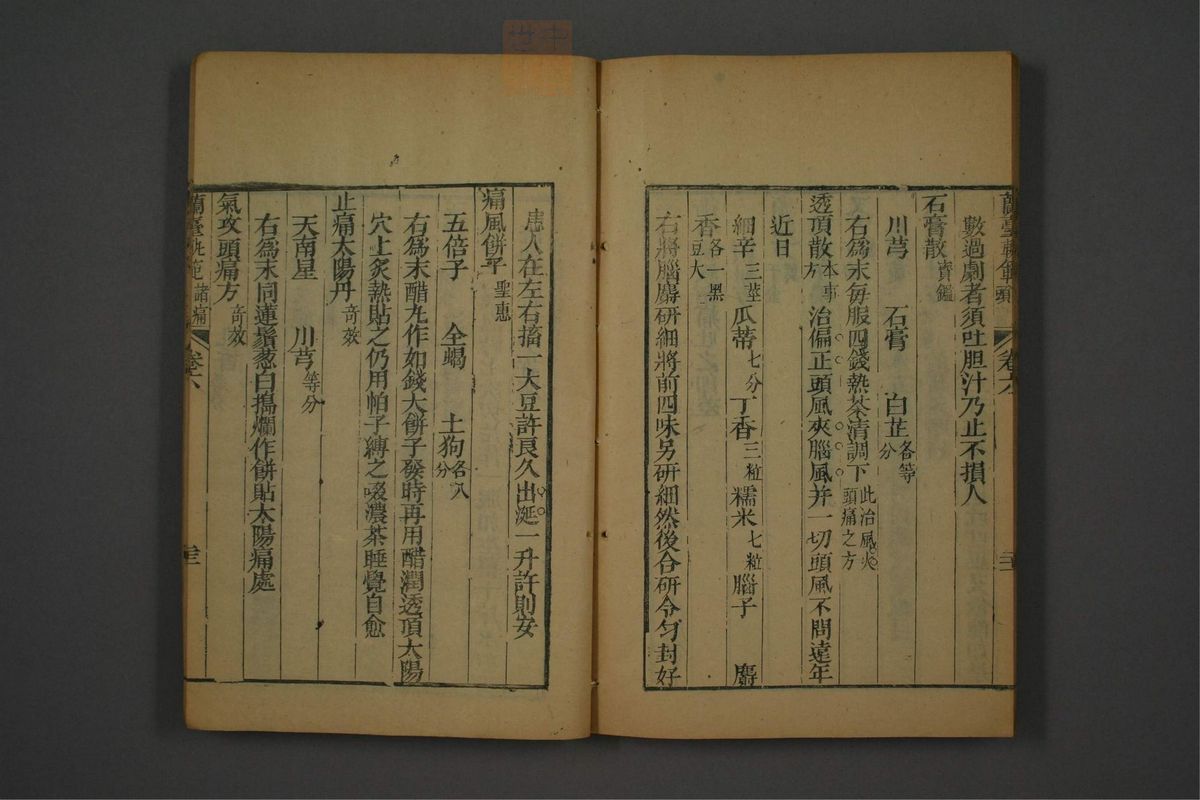 蘭臺軌範 頭 卷六 二十一
數過劇者須吐胆汁乃止不損人
石膏散 寶鑑
川芎 石膏 白芷 各等分
右為末每服四錢熱茶清調下 此治風火頭痛之方
透頂散 本事方 治偏正頭風夾腦風并一切頭風不問遠年
近日
細辛 三莖 瓜蒂 七分 丁香 三粒 糯米 七粒 腦子 麝
香 各一黑豆大
右將腦麝研細將前四味另研細然後合研令勻封好
患人在左右搐一大豆許良久出涎一升許則安
痛風餅子 聖惠
五倍子 全蝎 土狗 各八分
右為末醋丸作如錢大餅子發時再用醋潤透頂太陽
穴上炙熱貼之仍用帕子縛之啜濃茶睡覺自愈
止痛太陽丹 奇效
天南星 川芎 等分
右為末同蓮鬚葱白搗爛作餅貼太陽痛處
氣攻頭痛方 奇效
蘭臺軌範 諸痛 卷六